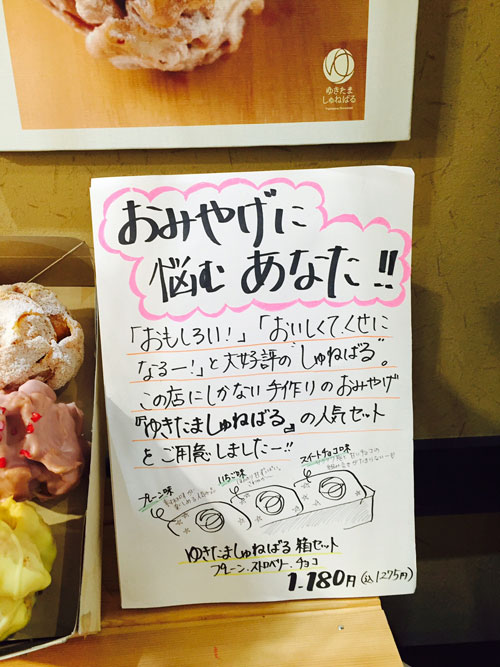 ゆきたま
しゅねばる
おみやげに
悩むあなた!!
「おもしろい!」「おいしくてくせに
なるー!」と大好評の"しゅねばる"。
この店にしかない手作りのおみやげ
『ゆきたましゅねばる』の人気セット
をご用意しましたー!!
プレーン味
いちご味
スイートチョコ味
ゆきたましゅねばる 箱セット
プレーン・ストロベリー・チョコ
1,180円(込1275円)